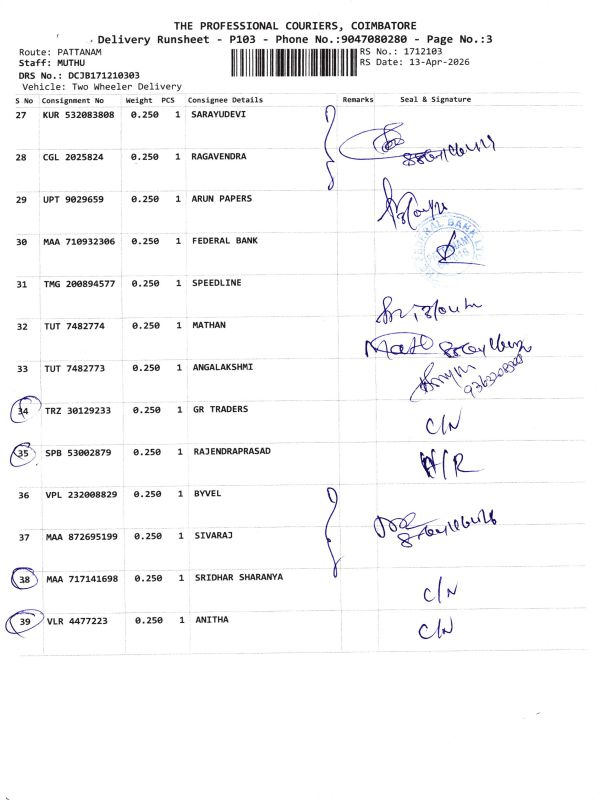 THE PROFESSIONAL COURIERS, COIMBATORE
Delivery Runsheet - P103 - Phone No.:9047080280 - Page No.:3
Route: PATTANAM RS No.: 1712103
Staff: MUTHU RS Date: 13-Apr-2026
DRS No.: DCJB171210303
Vehicle: Two Wheeler Delivery
S No Consignment No Weight PCS Consignee Details Remarks Seal & Signature
27 KUR 532083808 0.250 1 SARAYUDEVI
28 CGL 2025824 0.250 1 RAGAVENDRA
29 UPT 9029659 0.250 1 ARUN PAPERS
30 MAA 710932306 0.250 1 FEDERAL BANK
31 TMG 200894577 0.250 1 SPEEDLINE
32 TUT 7482774 0.250 1 MATHAN
33 TUT 7482773 0.250 1 ANGALAKSHMI
34 TRZ 30129233 0.250 1 GR TRADERS C/N
35 SPB 53002879 0.250 1 RAJENDRAPRASAD H/R
36 VPL 232008829 0.250 1 BYVEL
37 MAA 872695199 0.250 1 SIVARAJ
38 MAA 717141698 0.250 1 SRIDHAR SHARANYA C/N
39 VLR 4477223 0.250 1 ANITHA C/N